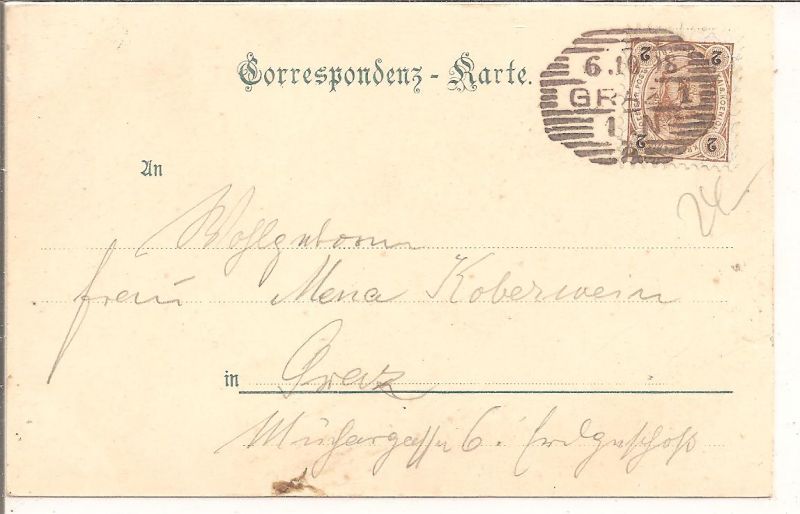 Correspondenz-Karte.
6.10.98
GRAZ 1
1 N
2 2
2 2
24
An
Wohlgeboren
Frau Mena Koberwein
in Graz
Muchargasse 6. Erdgeschoß